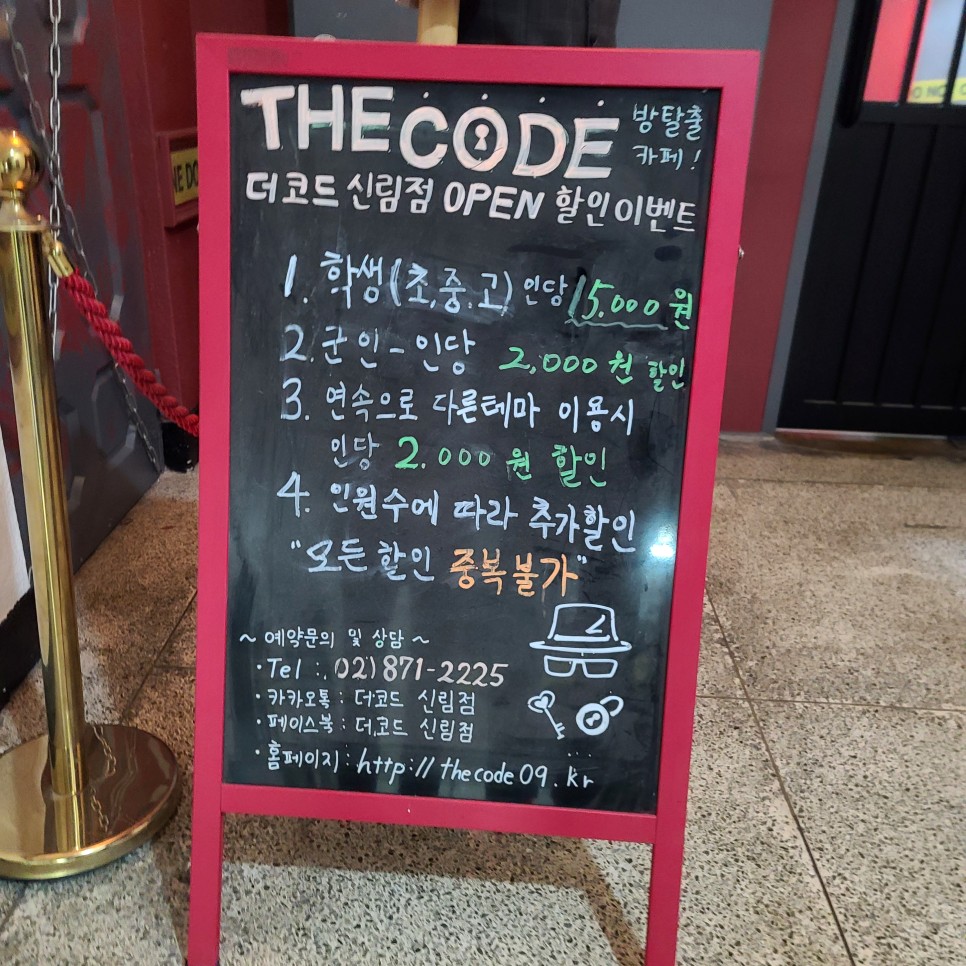 THE CODE 방탈출
카페!
더코드 신림점 OPEN 할인이벤트
1. 학생(초,중.고) 인당 15.000원
2. 군인 - 인당 2,000원 할인
3. 연속으로 다른테마 이용시
인당 2.000원 할인
4. 인원수에 따라 추가할인
"모든할인 중복불가"
~ 예약문의 및 상담 ~
·Tel : 02)871-2225
·카카오톡 : 더코드 신림점
·페이스북 : 더코드 신림점
·홈페이지 : http://thecode09.kr